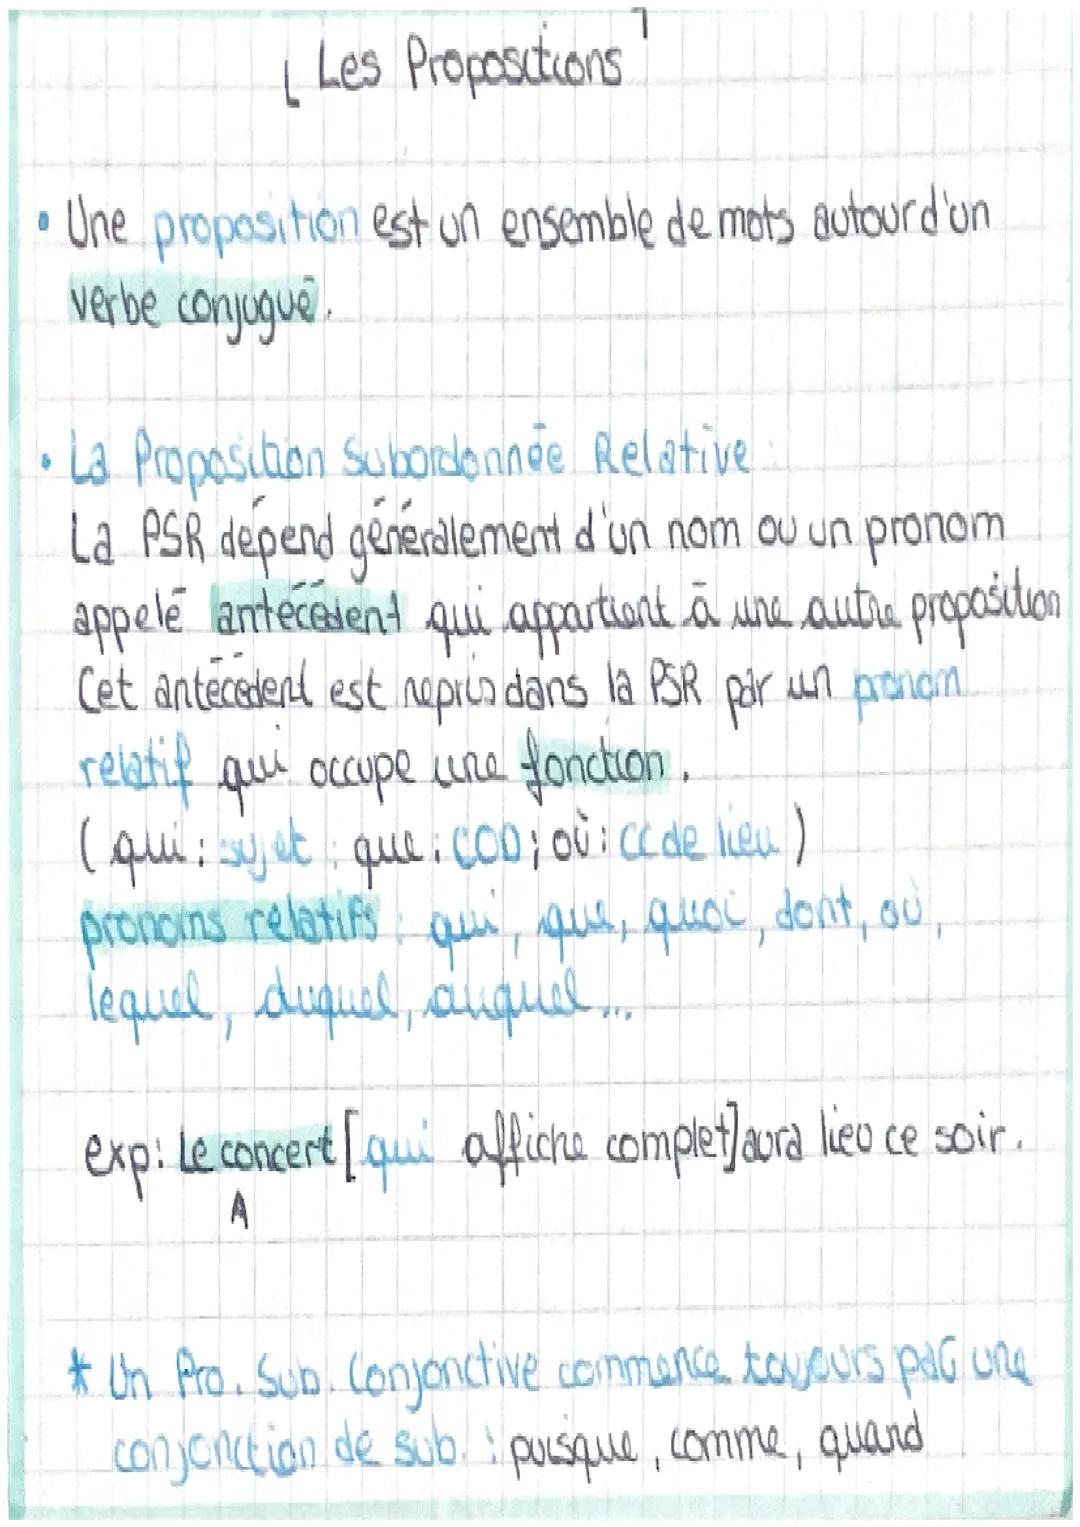 Les Propositions
• Une proposition est un ensemble de mots autour d'un
verbe conjugué.
• La Proposition Subordonnée Relative :
La PSR dépend généralement d'un nom ou un pronom
appelé antécédent qui appartient à une autre proposition
Cet antécédent est repris dans la PSR par un pronom
relatif qui occupe une fonction.
(qui : sujet ; que : COD ; où : CC de lieu)
pronoms relatifs : qui, que, quoi, dont, où,
lequel, duquel, auquel...
exp: Le concert [qui affiche complet] aura lieu ce soir.
A
* Un Pro. Sub. Conjonctive commence toujours par une
conjonction de sub. : puisque, comme, quand